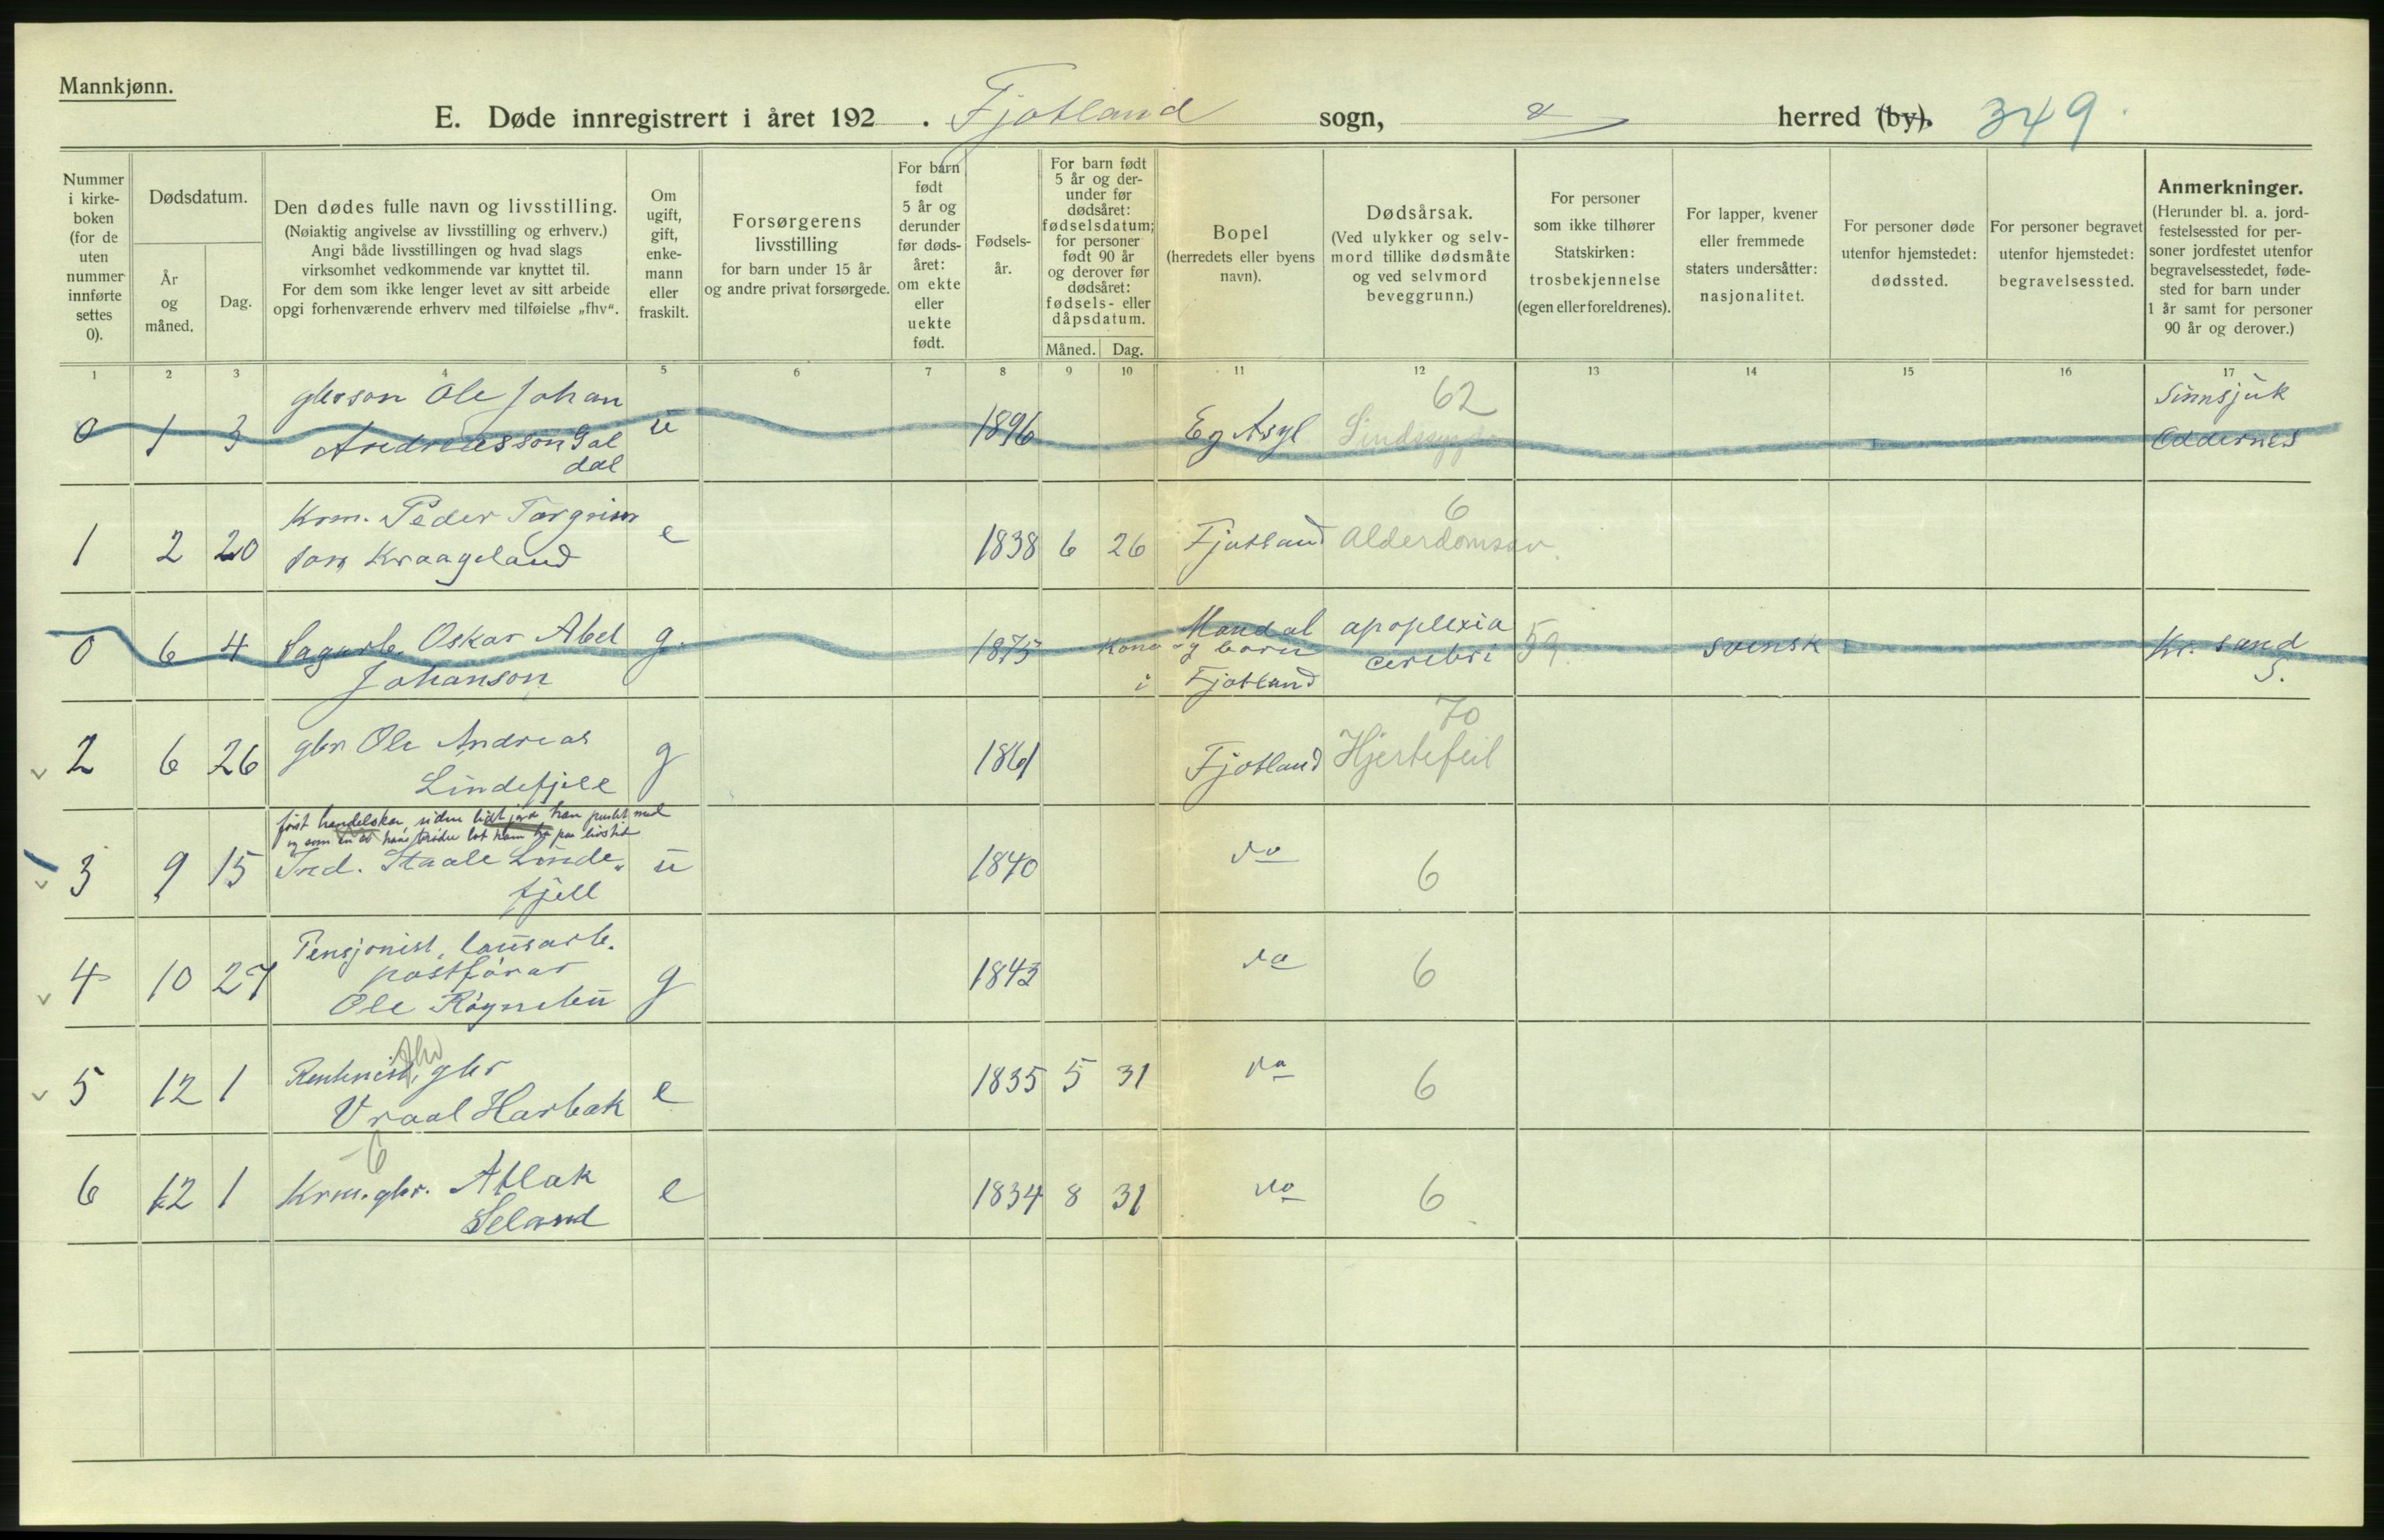 Mannkjønn.
E. Døde innregistrert i året 192 . Fjotland sogn, herred (by). 349
Nummer i kirke- boken (for de uten nummer innførte settes 0).
Dødsdatum.
År og måned.
Dag.
Den dødes fulle navn og livsstilling.
(Nøiaktig angivelse av livsstilling og erhverv.)
Angi både livsstillingen og hvad slags
virksomhet vedkommende var knyttet til.
For dem som ikke lenger levet av sitt arbeide
opgi forhenværende erhverv med tilføielse „fhv“.
Om ugift, gift, enke- mann eller fraskilt.
Forsørgerens livsstilling
for barn under 15 år
og andre privat forsørgede.
For barn født 5 år og derunder før døds- året: om ekte eller uekte født.
Fødsels- år.
For barn født 5 år og der- under før dødsåret: fødselsdatum; for personer født 90 år og derover før dødsåret: fødsels- eller dåpsdatum.
Måned. Dag.
Bopel
(herredets eller byens navn).
Dødsårsak.
(Ved ulykker og selv- mord tillike dødsmåte og ved selvmord beveggrunn.)
For personer som ikke tilhører Statskirken: trosbekjennelse (egen eller foreldrenes).
For lapper, kvener eller fremmede staters undersåtter: nasjonalitet.
For personer døde utenfor hjemstedet: dødssted.
For personer begravet utenfor hjemstedet: begravelsessted.
Anmerkninger.
(Herunder bl. a. jord- festelsessted for per- soner jordfestet utenfor begravelsesstedet, føde- sted for barn under 1 år samt for personer 90 år og derover.)
1 2 3 4 5 6 7 8 9 10 11 12 13 14 15 16 17
gbrson Ole Johan 62 Sinnsjuk
0 1 3 Andreasson Gal u 1896 Eg Asyl Sindssygdo Oddernes
dal
Krm. Peder Torgrim 6
1 2 20 son Kraageland e 1838 6 26 Fjotland Alderdomssv.
0 6 4 Sagarb. Oskar Abel g. 1875 Kona Mandal apoplexia 59. svensk Kr. sand
og born cerebri
Johanson i Fjotland S.
70
2 6 26 gbr Ole Andreas g 1861 Fjotland Hjertefeil
Lindefjell
først handelskar, siden han puslet med
3 9 15 Ind. Staale Linde- u 1840 do 6
fjell
Pensjonist, lausarb.
4 10 27 postførar g 1843 do 6
Ole Røynebu
fhv
5 12 1 Rentenist, gbr e 1835 5 31 do 6
Vraal Harbak
6
6 12 1 Krm. gbr. Atlak e 1834 8 31 do 6
Seland